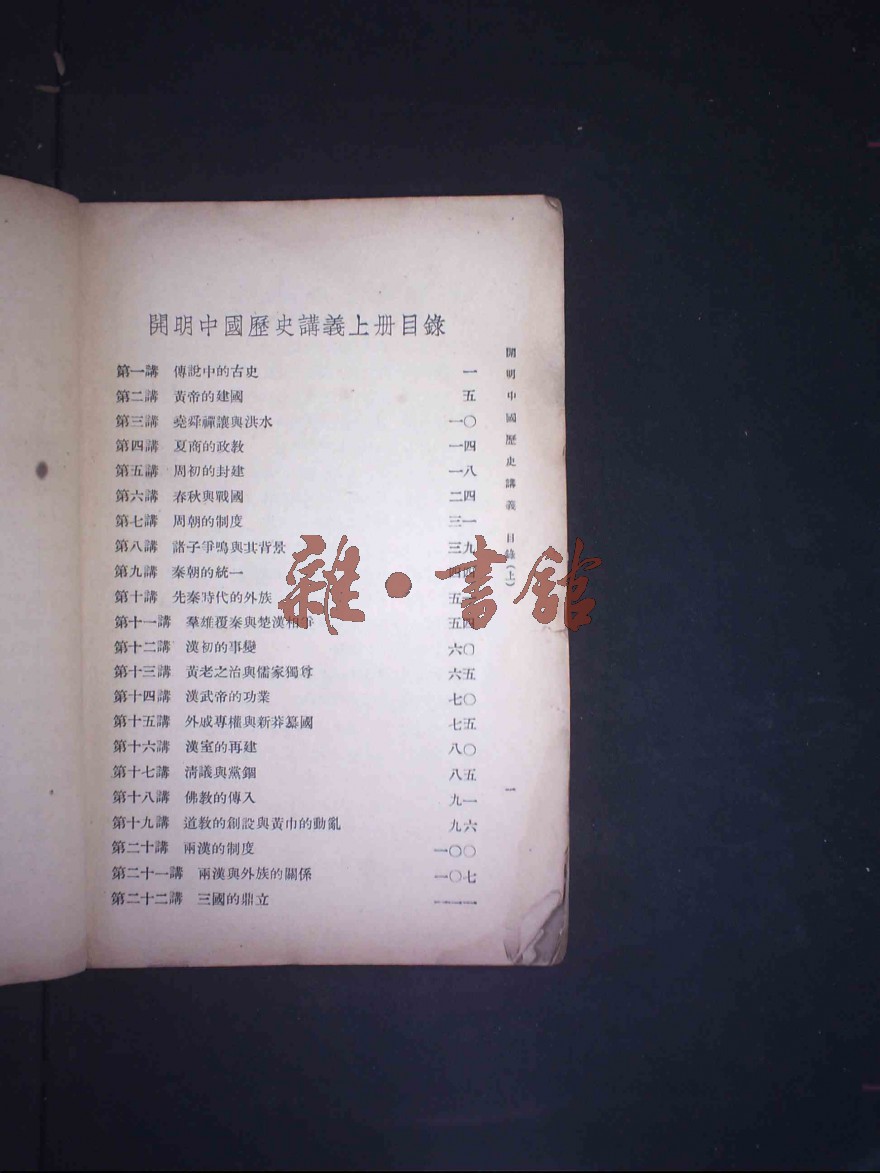 開明中國歷史講義上册目錄
第一講 傳說中的古史 一
第二講 黃帝的建國 五
第三講 堯舜禪讓與洪水 一〇
第四講 夏商的政教 一四
第五講 周初的封建 一八
第六講 春秋與戰國 二四
第七講 周朝的制度 三一
第八講 諸子爭鳴與其背景 三九
第九講 秦朝的統一
第十講 先秦時代的外族 五
第十一講 羣雄覆秦與楚漢相爭 五四
第十二講 漢初的事變 六〇
第十三講 黃老之治與儒家獨尊 六五
第十四講 漢武帝的功業 七〇
第十五講 外戚專權與新莽篡國 七五
第十六講 漢室的再建 八〇
第十七講 清議與黨錮 八五
第十八講 佛教的傳入 九一
第十九講 道教的創設與黃巾的動亂 九六
第二十講 兩漢的制度 一〇〇
第二十一講 兩漢與外族的關係 一〇七
第二十二講 三國的鼎立 一一一
開明中國歷史講義 目錄(上)
一
雜·書館